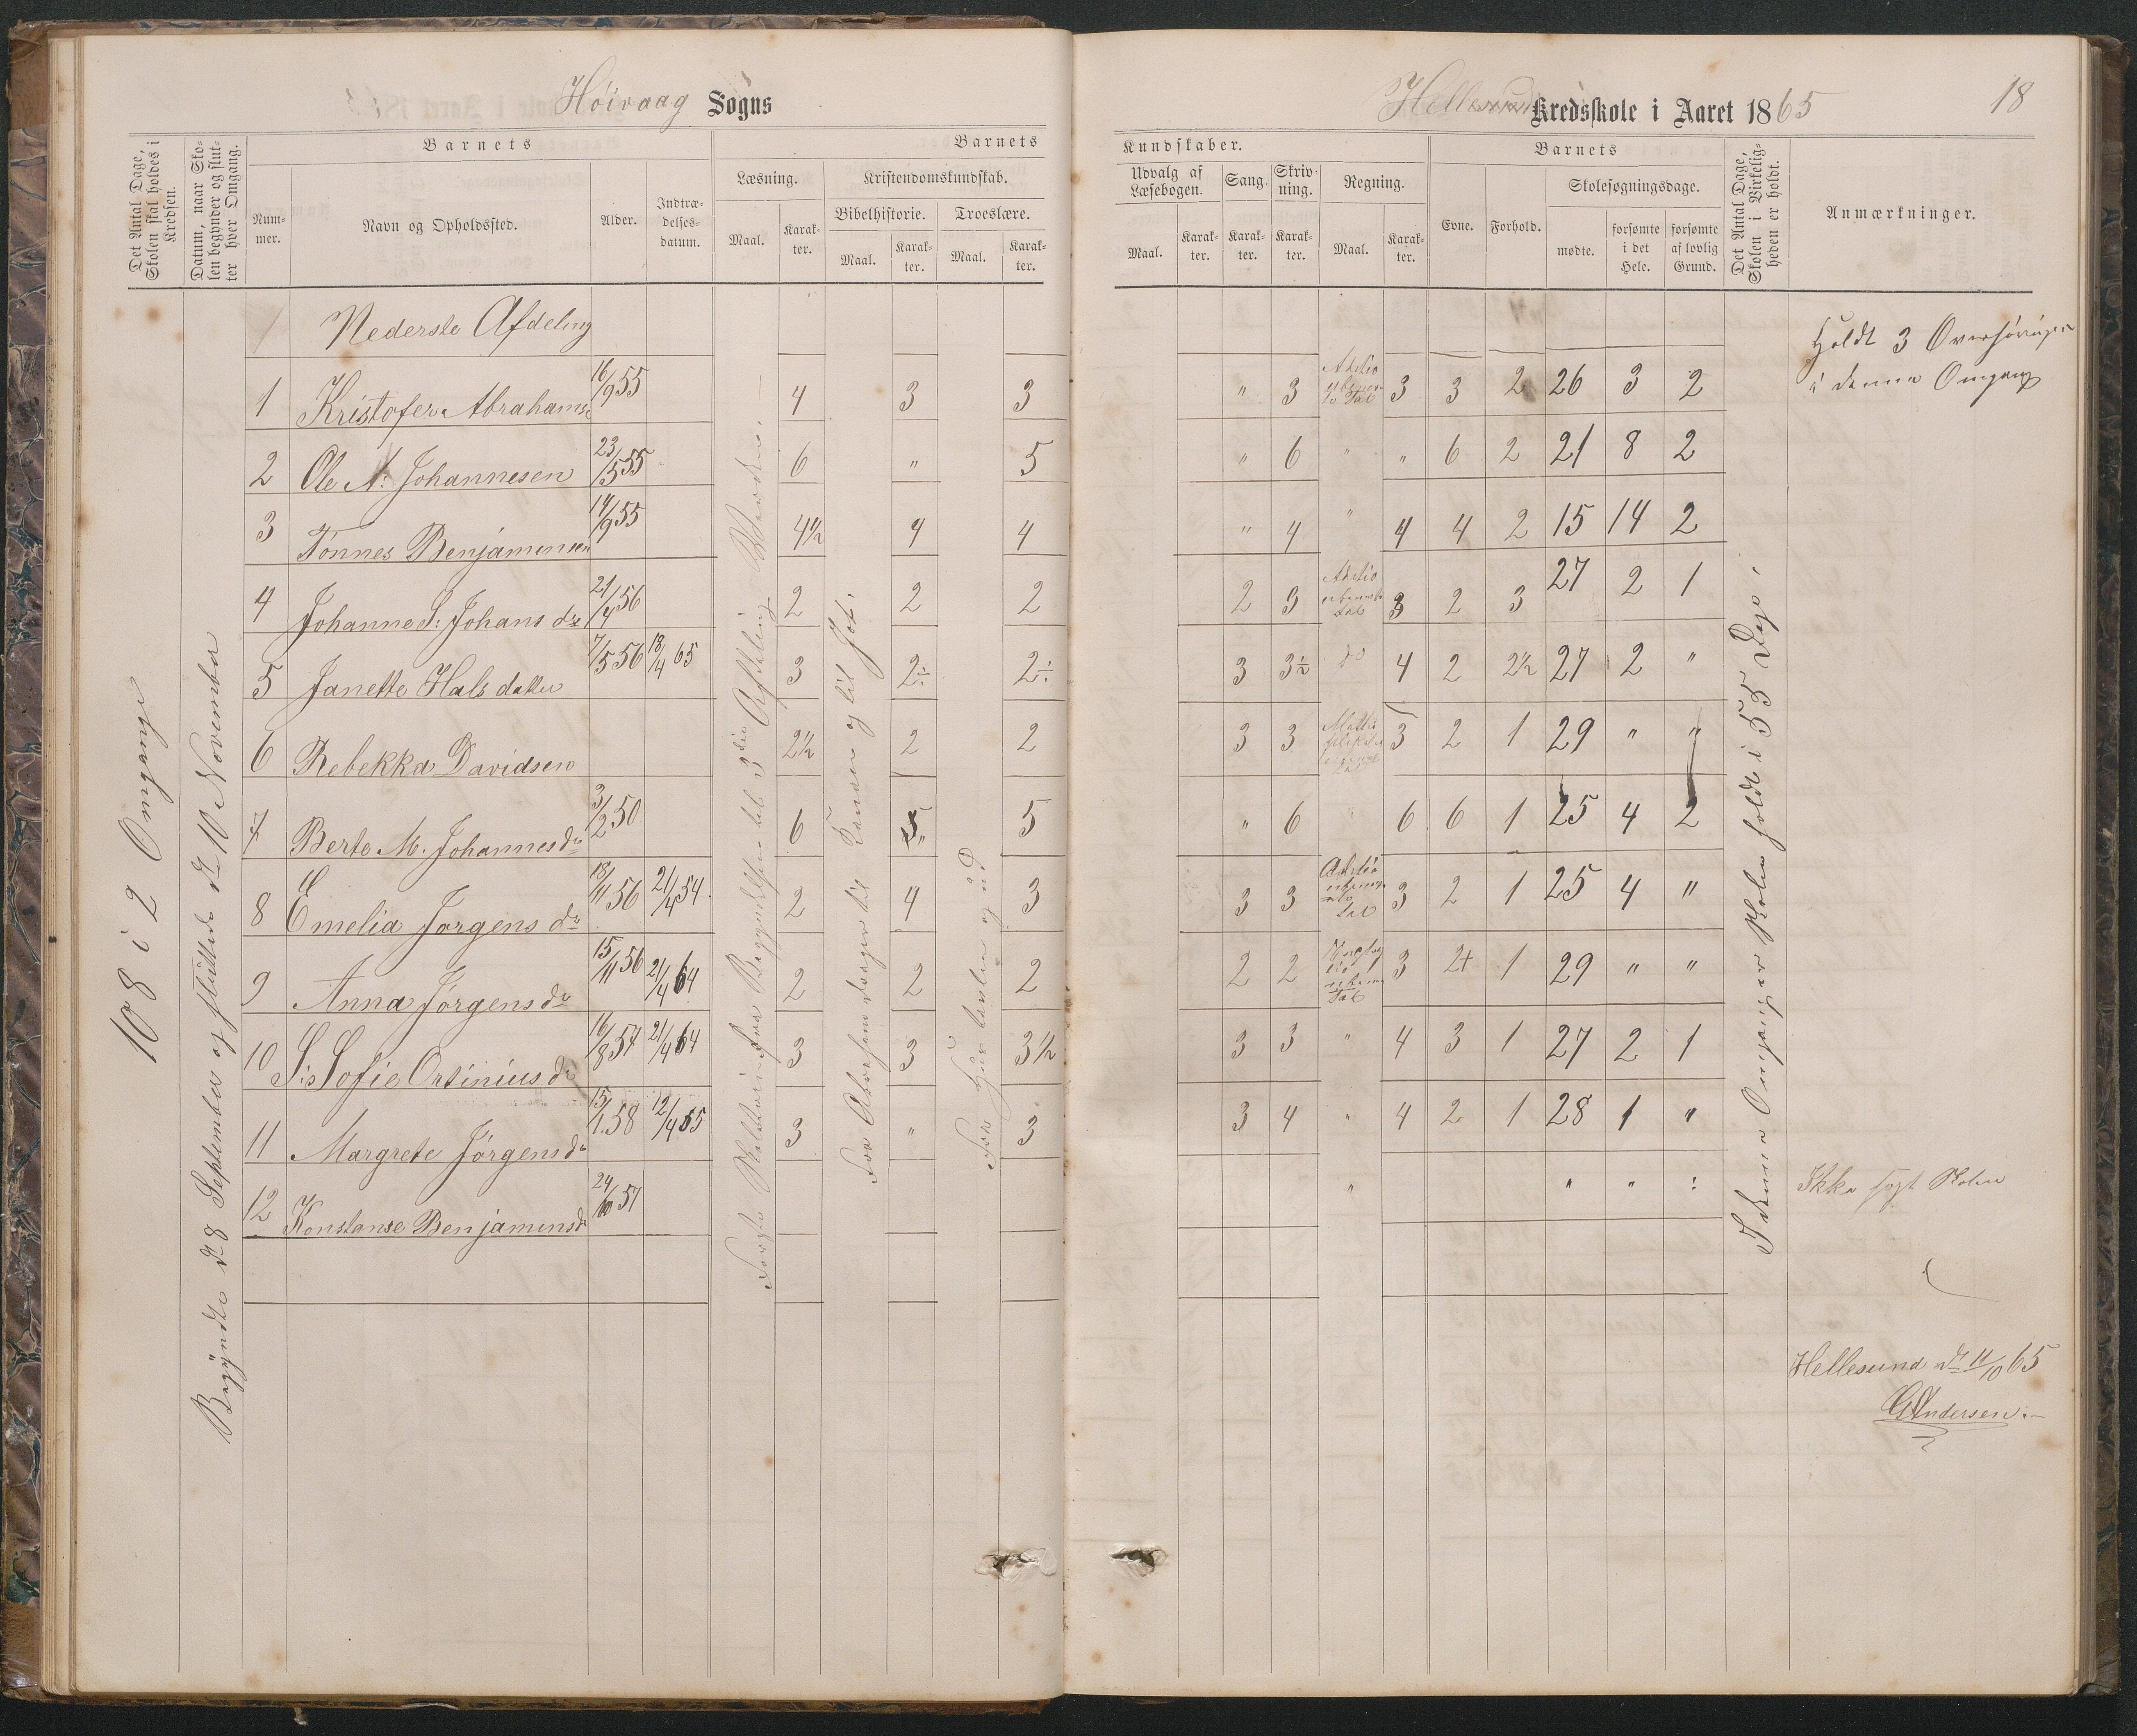 Höivaag Sogns
Det Antal Dage, Skolen skal holdes i Kredsen.
Datum, naar Skolen begynder og slutter hver Omgang.
Barnets
Nummer.
Navn og Opholdssted.
Alder.
Indtrædelsesdatum.
Barnets
Læsning.
Maal.
Karakter.
Kristendomskundskab.
Bibelhistorie.
Troeslære.
Maal.
Karakter.
Maal.
Karakter.
108 i 2 Omgange
Begyndte d 8 September og sluttede d 10 November
Nederste Afdeling
1 Kristofer Abrahams 16/9 55 4 3 3
2 Ole A: Johannesen 23/5 55 6 " 5
3 Tönnes Benjaminsen 14/9 55 4½ 4 4
4 Johanne S: Johans d 21/4 56 2 2 2
5 Janette Hals datter 7/5 56 18/4 65 3 2÷ 2÷
6 Rebekka Davidsen 2½ 2 2
7 Berte M. Johannesd 3/2 50 6 5
8 Emelia Jörgens d 18/11 56 21/4 54 2 4 3
9 Anna Jörgens d 15/11 56 21/4 64 2 2 2
10 S: Sofie Ortinius d 16/8 57 21/4 64 3 3 3½
11 Margrete Jörgens d 15/1 58 12/4 65 3 " 3
12 Konstanse Benjamins d 24/10 57
Hellesund Kredsskole i Aaret 1865
18
Kundskaber.
Udvalg af Læsebogen.
Maal.
Karakter.
Sang.
Karakter.
Skrivning.
Karakter.
Regning.
Maal.
Karakter.
Barnets
Evne.
Forhold.
Skolesøgningsdage.
mødte.
forsømte i det Hele.
forsømte af lovlig Grund.
Det Antal Dage, Skolen i Virkeligheden er holdt.
Anmærkninger.
" 3 3 3 2 26 3 2
" 6 " " 6 2 21 8 2
" 4 " 4 4 2 15 14 2
2 3 3 2 3 27 2 1
3 3½ do 4 2 2½ 27 2 "
3 3 3 2 1 29 " "
" 6 6 6 1 25 4 2
3 3 3 2 1 25 4 "
2 2 3 2+ 1 29 " "
3 3 " 4 3 1 27 2 1
3 4 " 4 2 1 28 1 "
" " " :
I denne Omgang er Skolen holdt i 55 Dage.
Holdt 3 Overhøringer
i denne Omgang
Ikke søgt Skolen
Hellesund d 11/10 65
G Andersen.